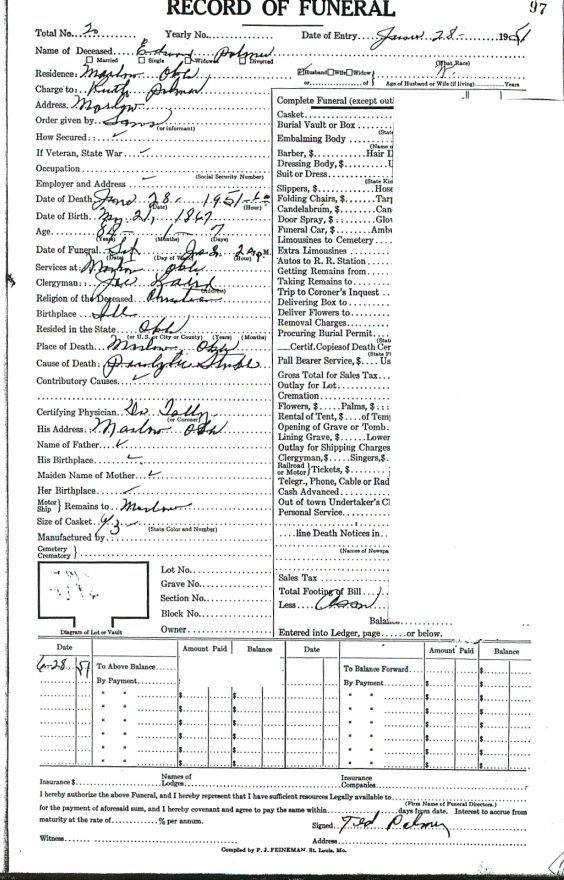 RECORD OF FUNERAL 97
Total No. 20 Yearly No. Date of Entry June 28 1951
Name of Deceased Edward Palmer
Married Single Widowed Divorced (What Race)
Residence: Marlow Okla Husband Wife Widow W.
or of Age of Husband or Wife (if living) Years
Charge to: Ruth Palmer
Address. Marlow
Order given by Sons
(or informant)
How Secured:
If Veteran, State War
Occupation
(Social Security Number)
Employer and Address
Date of Death: June 28, 1951
(Date) (Hour)
Date of Birth: May 21, 1867
Age 84 1 7
(Years) (Months) (Days)
Date of Funeral P.M.
(Date) (Day of Week) (Hour)
Services at: Marlow Okla
Clergyman: Joe
(Address)
Religion of the Deceased Christian
Birthplace Ill
Resided in the State Okla
(or U.S. or City or County) (Years) (Months)
Place of Death: Marlow Okla
Cause of Death: Paralytic Stroke
Contributory Causes
Certifying Physician Dr. Talley
(or Coroner)
His Address Marlow Okla
Name of Father
His Birthplace
Maiden Name of Mother
Her Birthplace
Motor Ship } Remains to Marlow
Size of Casket 6/3
(State Color and Number)
Manufactured by
Cemetery
Crematory }
Diagram of Lot or Vault
Lot No.
Grave No.
Section No.
Block No.
Owner
Complete Funeral (except out
Casket
Burial Vault or Box
(State
Embalming Body
(Name o
Barber, $ Hair D
Dressing Body, $
Suit or Dress
(State Kin
Slippers, $ Hos
Folding Chairs, $ Tar
Candelabrum, $ Can
Door Spray, $ Glo
Funeral Car, $ Amb
Limousines to Cemetery
Extra Limousines
Autos to R. R. Station
Getting Remains from
Taking Remains to
Trip to Coroner's Inquest
Delivering Box to
Deliver Flowers to
Removal Charges
Procuring Burial Permit
(State
Certif. Copies of Death Cer
(State P
Pall Bearer Service, $ Us
Gross Total for Sales Tax
Outlay for Lot
Cremation
Flowers, $ Palms, $
Rental of Tent, $ of Tem
Opening of Grave or Tomb
Lining Grave, $ Lower
Outlay for Shipping Charges
Clergyman, $ Singers, $
Railroad or Motor } Tickets, $
Telegr., Phone, Cable or Rad
Cash Advanced
Out of town Undertaker's C
Personal Service
line Death Notices in
(Names of Newspa
Sales Tax
Total Footing of Bill
Less
Balan
Entered into Ledger, page or below.
Date Amount Paid Balance Date Amount Paid Balance
6-28 51 To Above Balance To Balance Forward $
By Payment By Payment $ $
" " $ $ " " $ $
" " $ $ " " $ $
" " $ $ " " $ $
" " $ $ " " $ $
" " $ $ " " $ $
Insurance $ Names of Lodges Insurance Companies
I hereby authorize the above Funeral, and I hereby represent that I have sufficient resources Legally available to
(Firm Name of Funeral Directors.)
for the payment of aforesaid sum, and I hereby covenant and agree to pay the same within days from date. Interest to accrue from
maturity at the rate of % per annum. Signed Ted Palmer
Witness Address
Compiled by F. J. FEINEMAN, St. Louis, Mo.